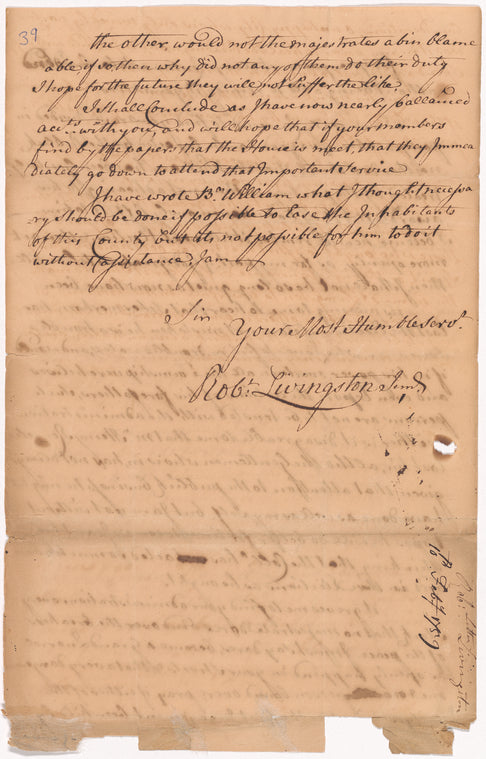 39
the other, would not the majestrates a bin blame
able if so then why did not any of them do their duty
I hope for the future they will not suffer the like
I shall Conclude as I have now nearly ballained
accts. with you, and will hope that if your members
find by the papers that the House is meet that they Imme
diately go down to attend that Important Service
I have wrote Br. William what I thought necessa
ry should be done if possible to Ease the Inhabitants
of this County but its not possible for him to do it
without assistance. I am
Sir
Your Most Humble Servt.
Robt. Livingston Junr.
Livingston